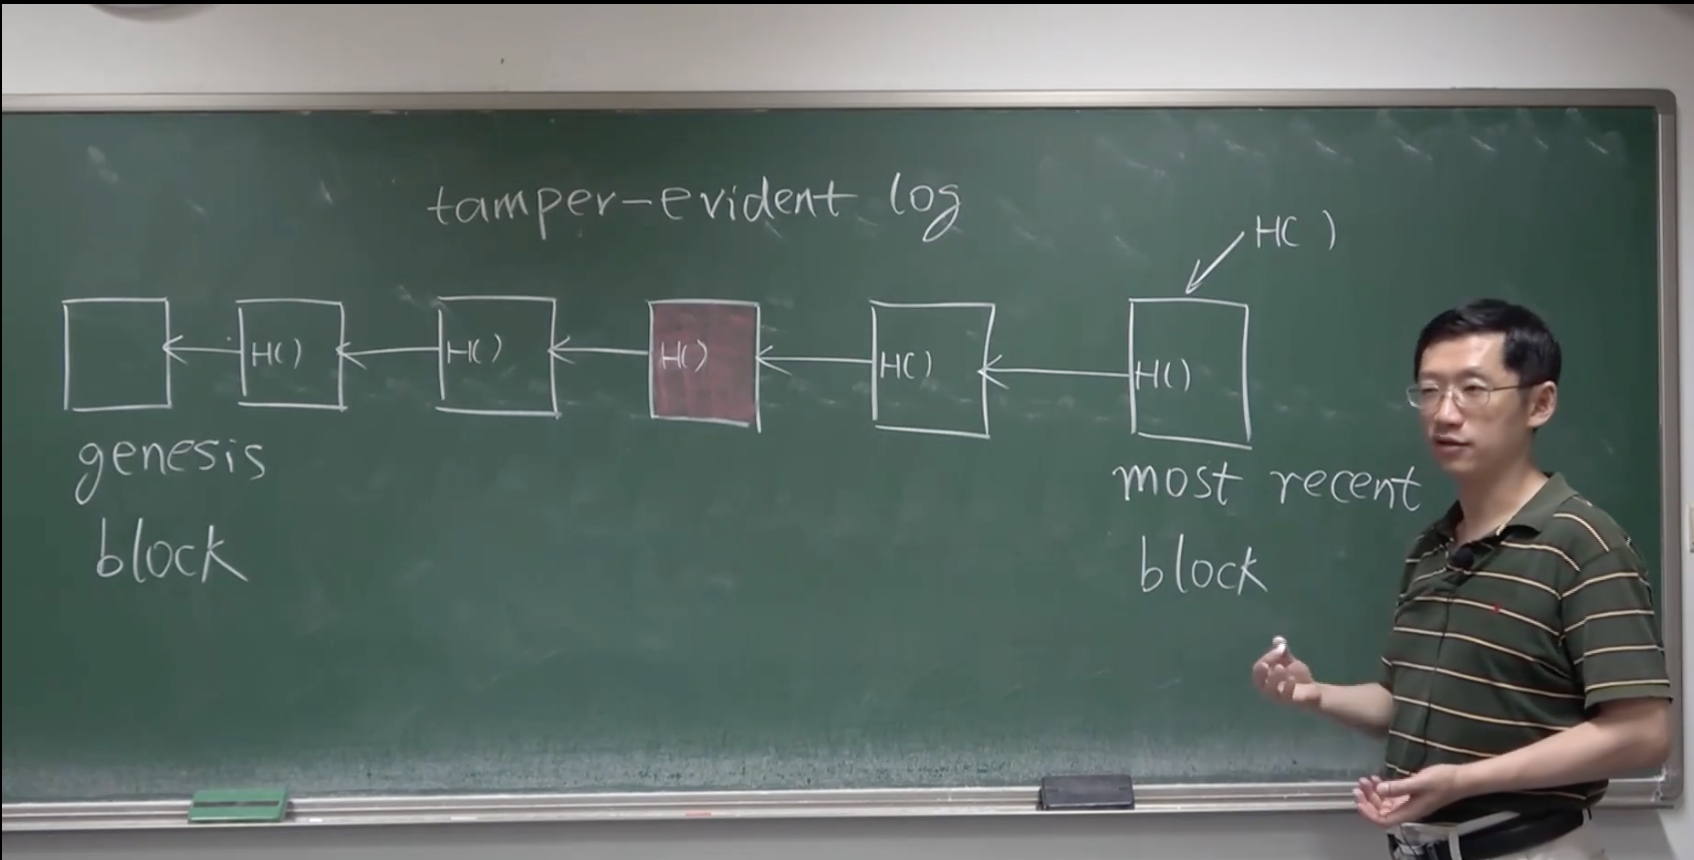 tamper-evident log
H( )
H() H() H() H() H()
genesis
block
most recent
block